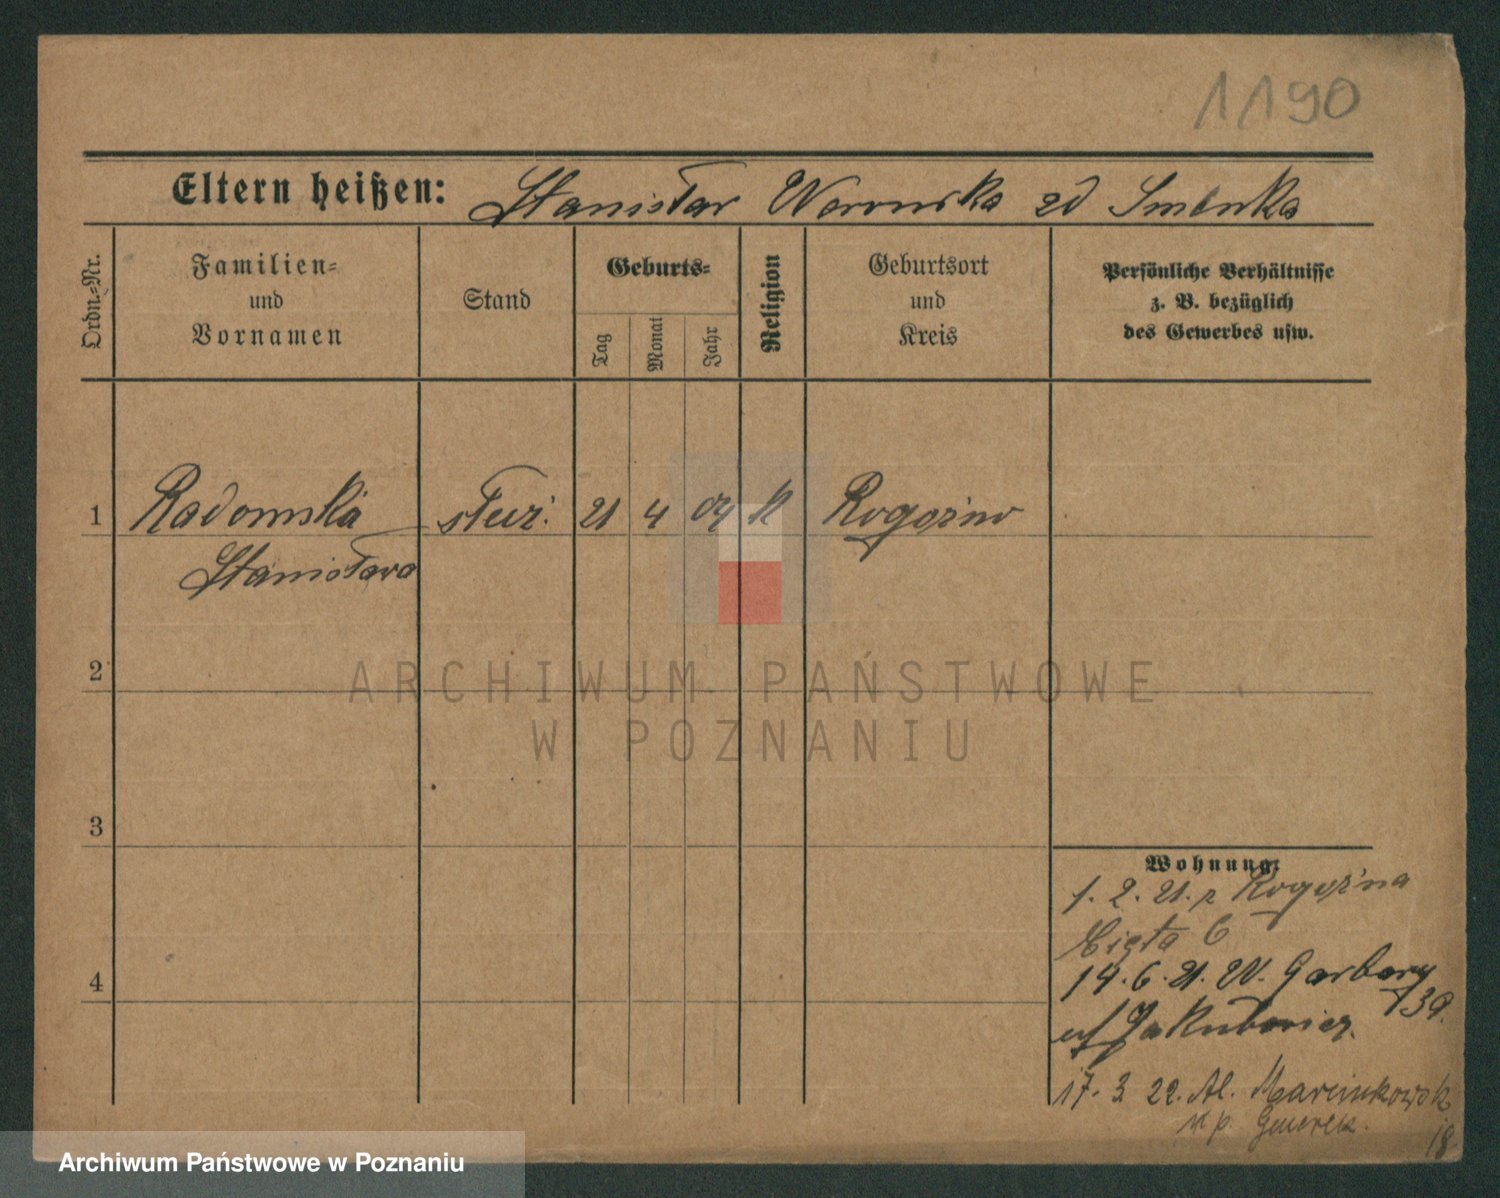 1190
Eltern heißen: Stanisław Woronska zd Smenka
Ordn.-Nr.
Familien- und Vornamen
Stand
Geburts-
Tag
Monat
Jahr
Religion
Geburtsort und Kreis
Persönliche Verhältnisse
z. B. bezüglich
des Gewerbes usw.
1 Radomska służ. 21 4 04 K Rogoźno
Stanisława
2
ARCHIWUM PAŃSTWOWE
W POZNANIU
3
Wohnung:
1. 2. 21. z Rogoźna
6
4
14. 6. 21. W. Garbary
39.
Jakubowicz.
17. 3 22. Al. Marcinkowsk
u p.
18
Archiwum Państwowe w Poznaniu